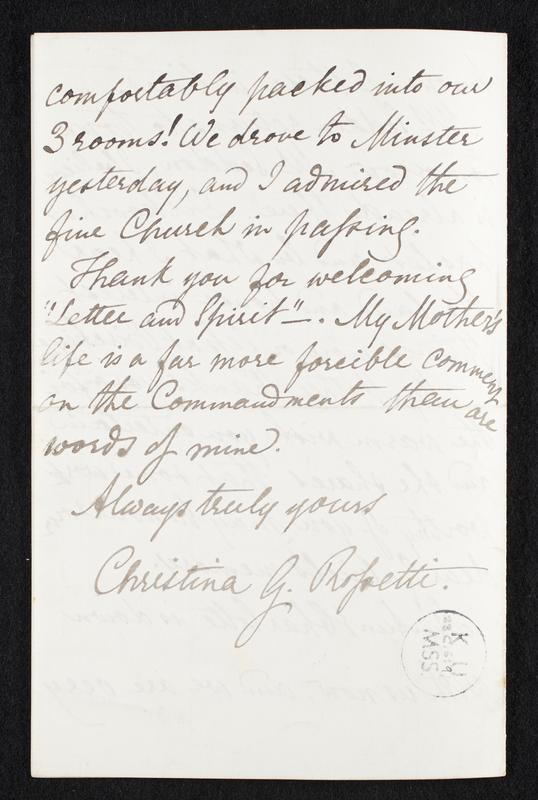 comfortably packed into our
3 rooms! We drove to Minster
yesterday, and I admired the
fine Church in passing.
Thank you for welcoming
"Letter and Spirit"—. My Mother's
life is a far more forcible comment
on the Commandments than are
words of mine.
Always truly yours
Christina G. Rossetti.
K.U.
MSS.